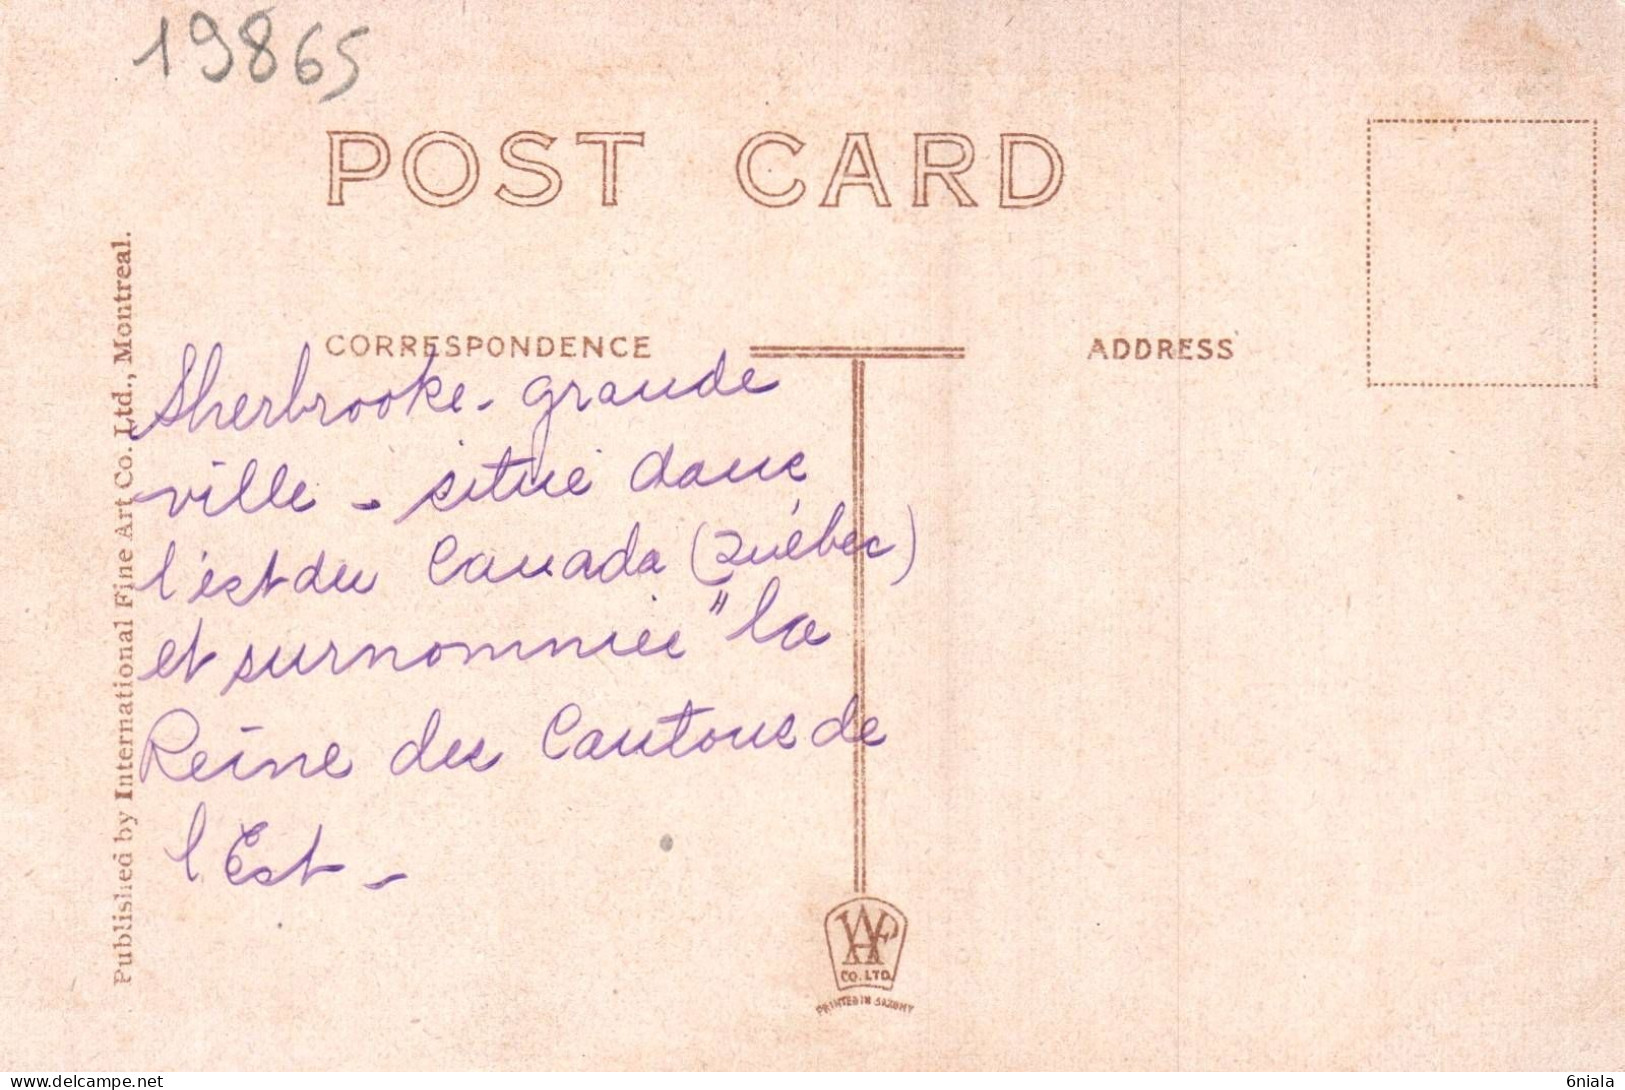 19865
POST CARD
Published by International Fine Art Co. Ltd., Montreal.
CORRESPONDENCE
ADDRESS
Sherbrooke - grande
ville - situé dans
l'est du Canada (Québec)
et surnommée "la
Reine des Cantons de
l'Est -
CO. LTD.
PRINTED IN SAXONY
delcampe.net
6niala